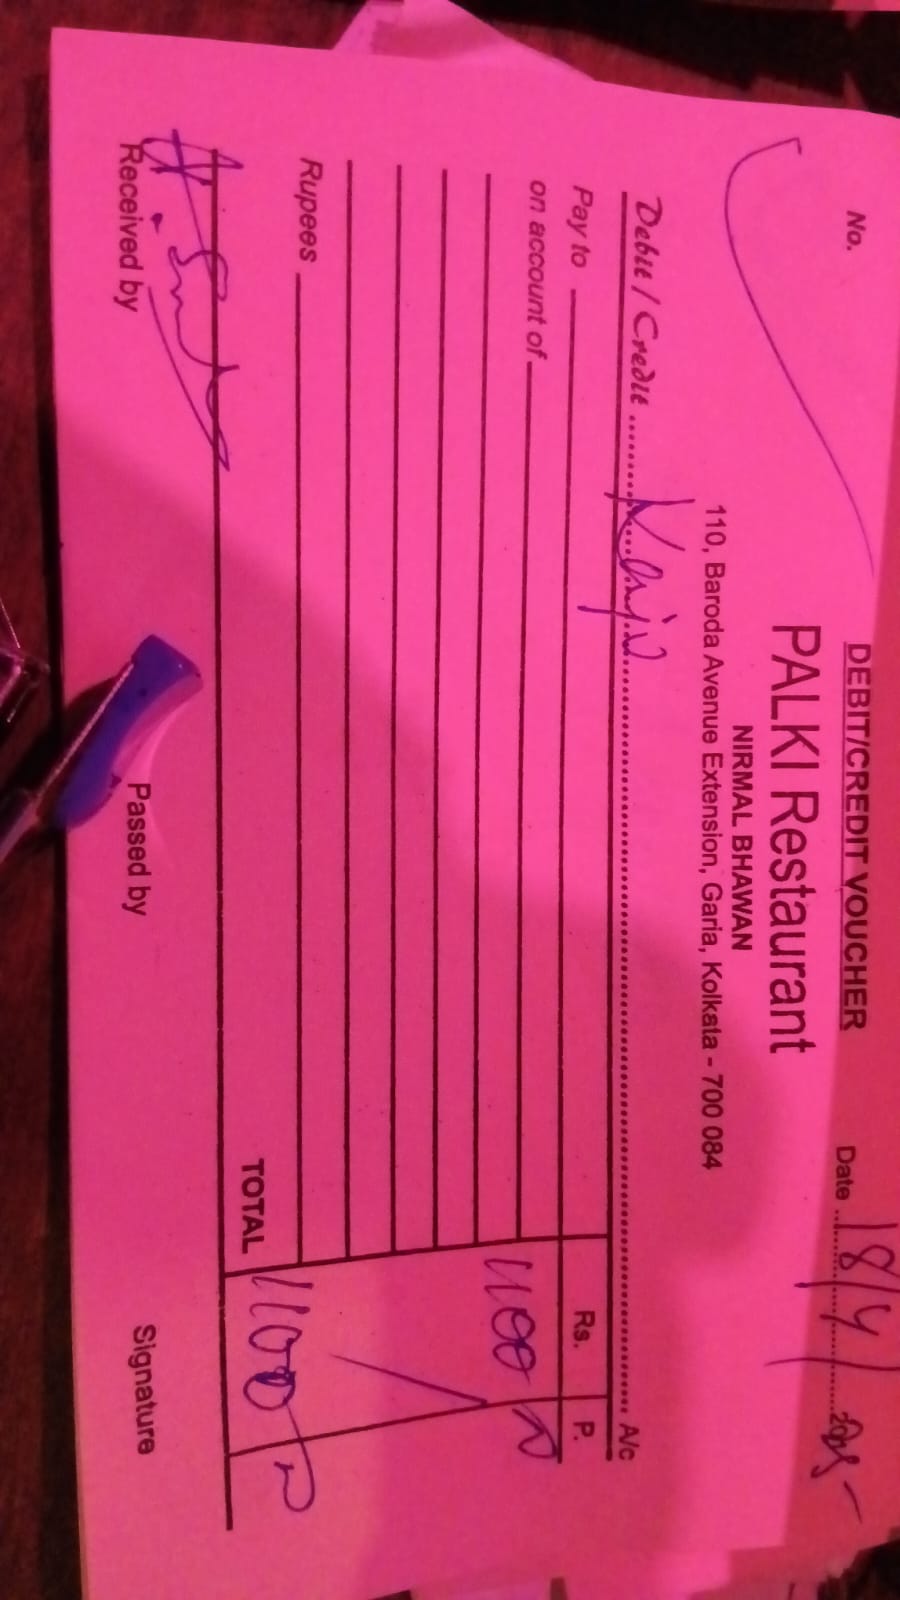 DEBIT/CREDIT VOUCHER
No. Date 18/4/
PALKI Restaurant
NIRMAL BHAWAN
110, Baroda Avenue Extension, Garia, Kolkata - 700 084
Debit / Credit .......... A/c
Pay to Rs. P.
on account of 1100
Rupees
TOTAL 1100
Received by Passed by Signature